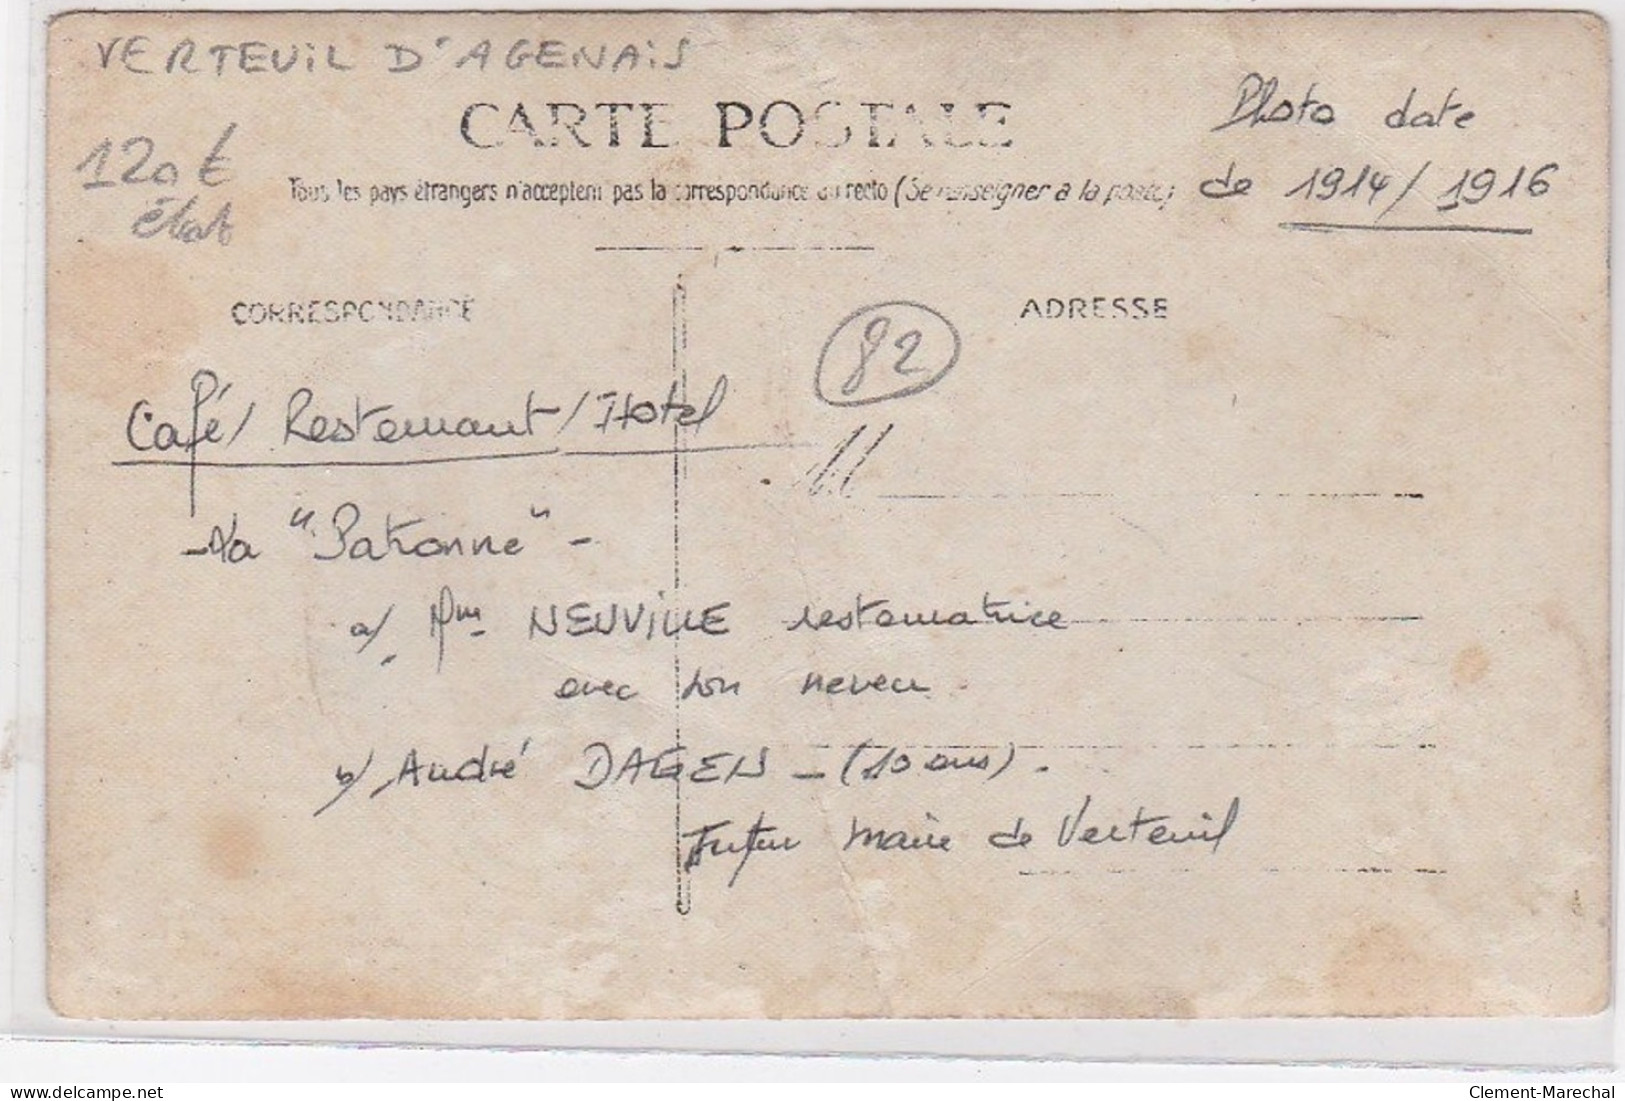 VERTEUIL D'AGENAIS
CARTE POSTALE
Photo date
120 €
Tous les pays étrangers n'acceptent pas la correspondance au recto (Se renseigner à la poste)
de 1914/1916
état
CORRESPONDANCE
ADRESSE
82
Café/ Restaurant/ Hotel
- La "Patronne" -
a/ Mme NEUVILLE restauratrice
avec son neveu.
b/ André DAGEN - (10 ans).
Futur Maire de Verteuil
delcampe.net
Clement-Marechal